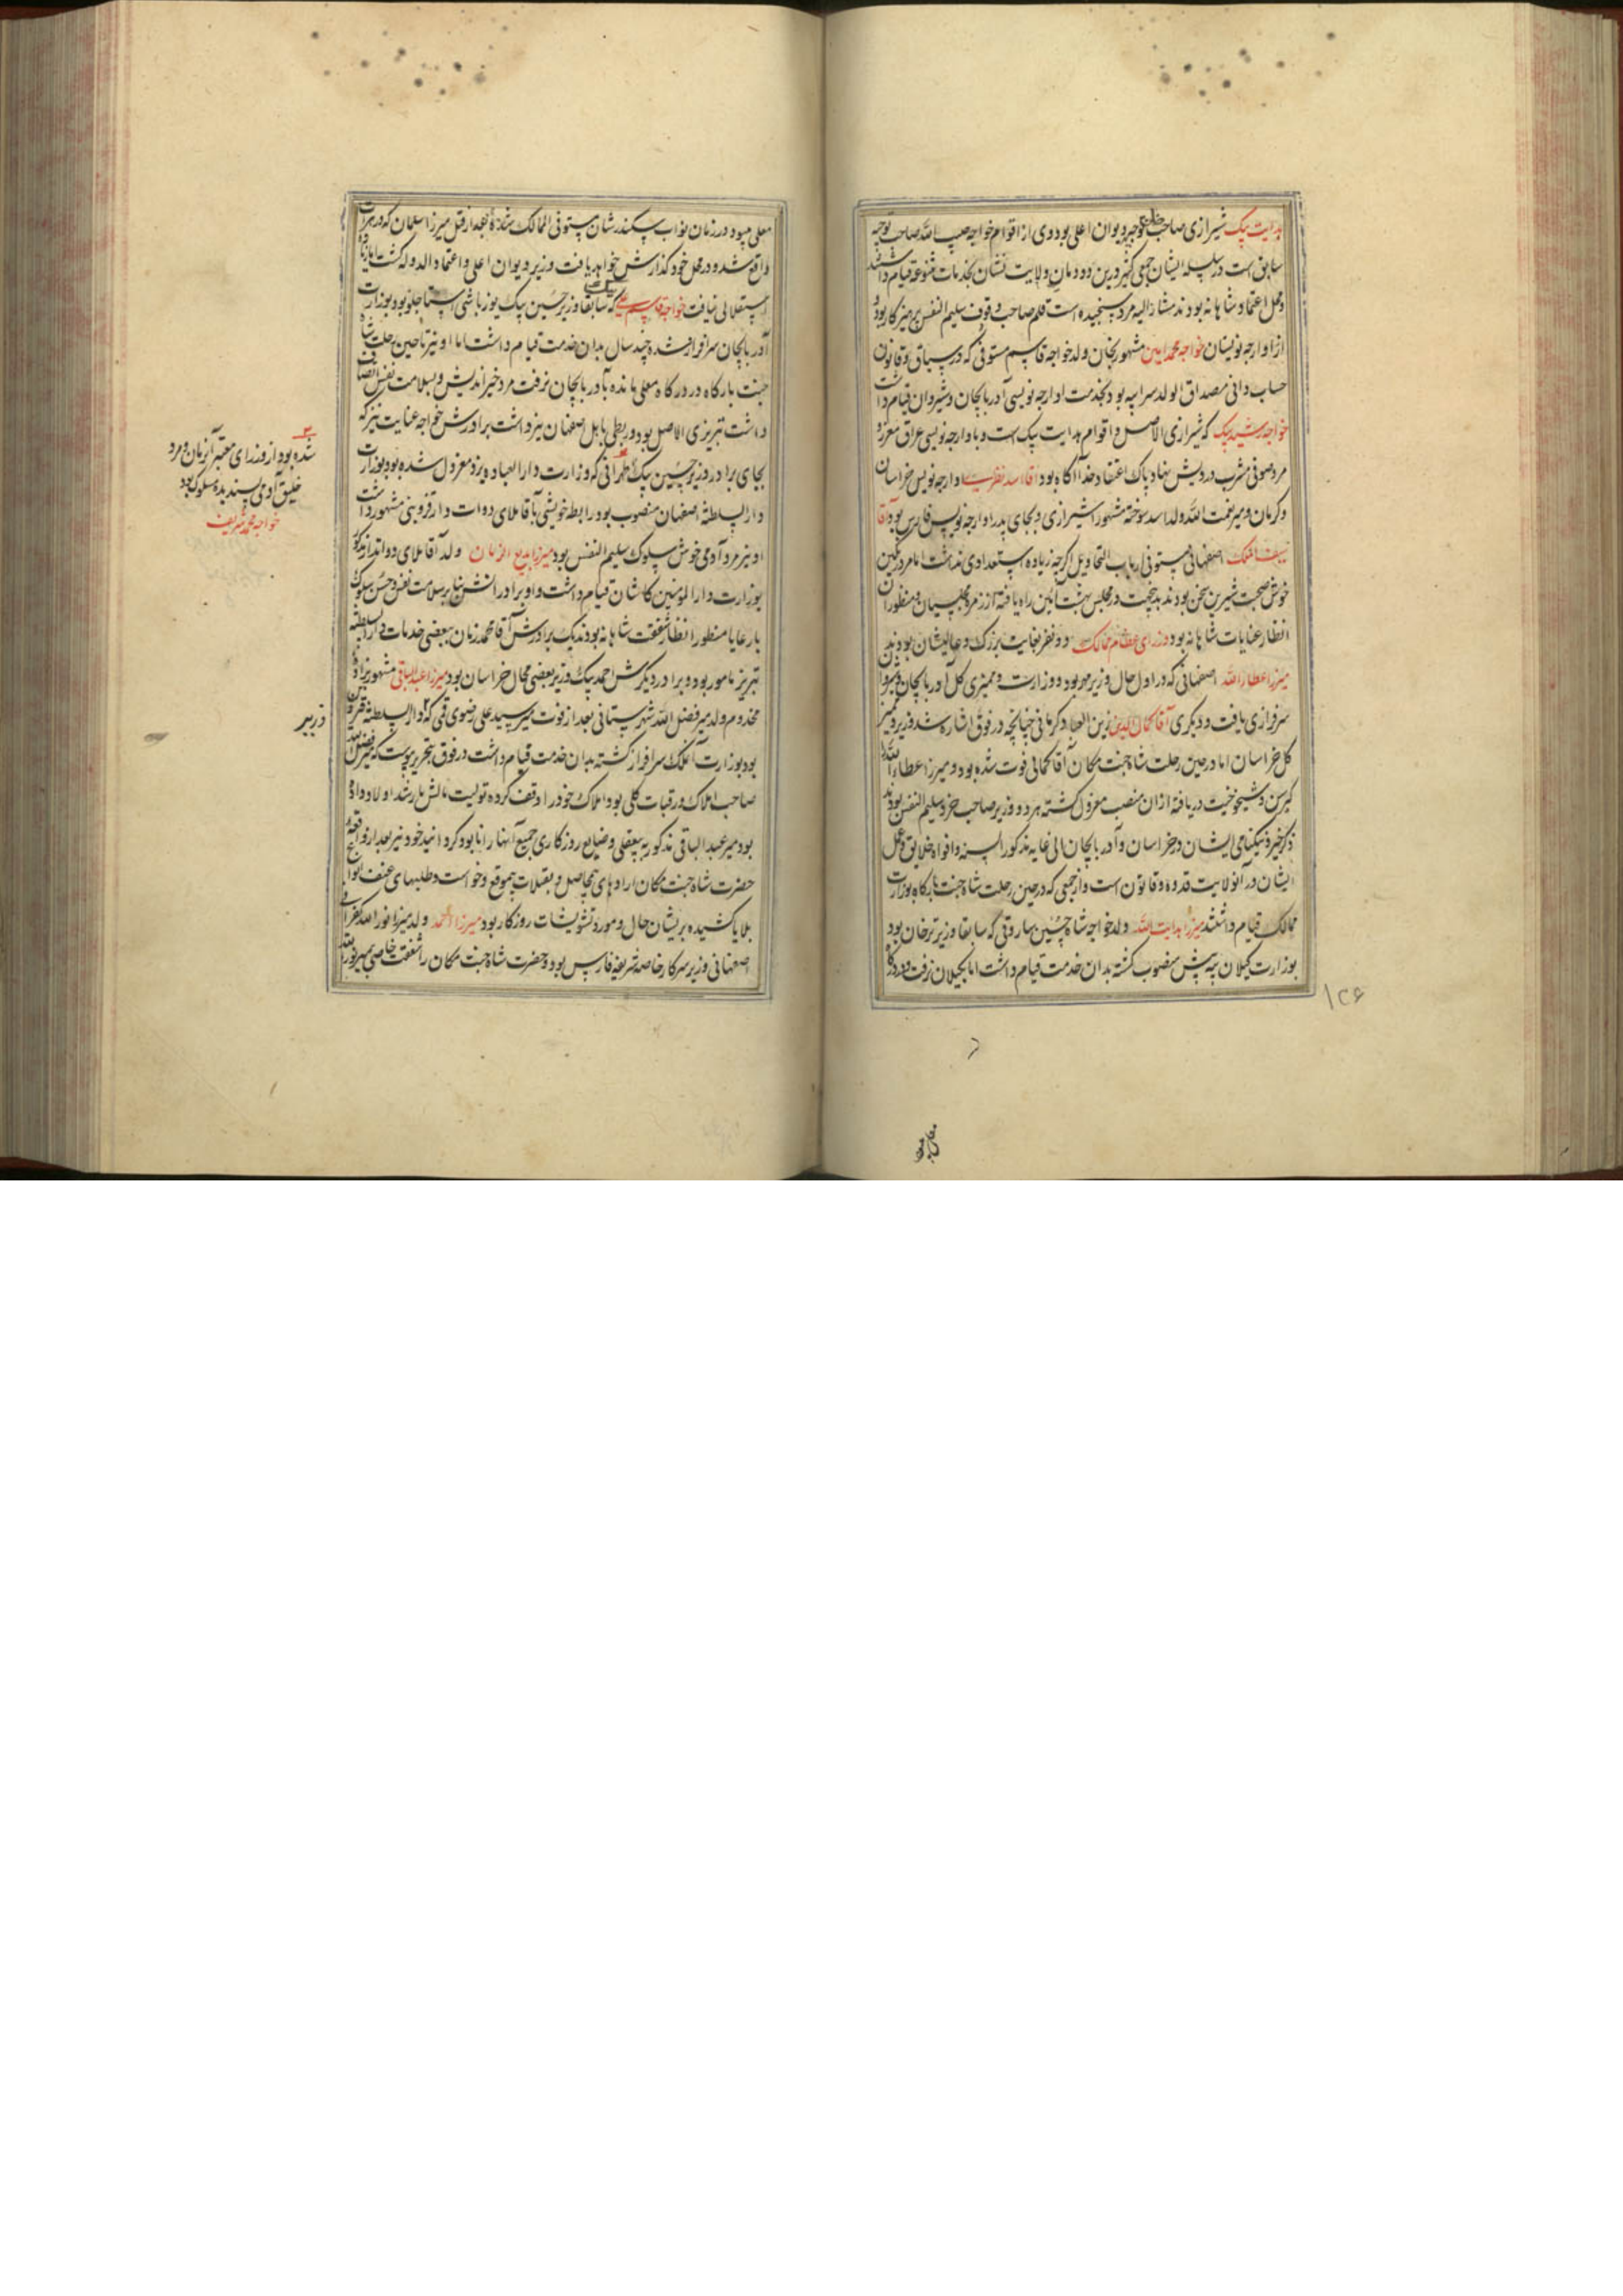 هدایت بیک شیرازی صاحب توجیه دیوان اعلی بود وی از اقوام خواجه حبیب الله صاحب توجیه
سابق است در سلسله ایشان جمعی کثیر درین دودمان ولایت نشان بخدمات متنوعه قیام داشتند
و محل اعتماد شاهانه بودند مشار الیه مرد سنجیده است قلم صاحب وقوف سلیم النفس پرهیزکار بود و
از اوارجه نویسان خواجه محمد امین مشهور بخان ولد خواجه قاسم مستوفی که در سیاق و قانون
حساب دانی مصداق الولد سر ابیه بود بخدمت اوارجه نویسی آذربایجان و شیروان قیام داشت
خواجه رشید بیک که شیرازی الاصل و اقوام هدایت بیک است و با اوارجه نویسی عراق معزز و
مرد صوفی مشرب درویش نهاد پاک اعتقاد خدا آگاه بود آقا اسد نظر اوارجه نویس خراسان
و کرمان و میر نعمت الله ولد اسد سوخته مشهور شیرازی و بجای پدر اوارجه نویس فارس بود آقا
سیف الملک اصفهانی مستوفی ارباب التحاویل اگرچه زیاده استعدادی نداشت اما مرد رنگین
خوش صحبت شیرین سخن بود ندبدیخت در مجلس بهشت آئین راه یافته از زمره مجلسیان و منظوران
انظار عنایات شاهانه بود وزرای عظام ممالک دو نفر بغایت بزرگ و عالیشان بودند
میرزا عطاء الله اصفهانی که در اول حال وزیر مهر بود و وزارت و ممیزی کل آذربایجان و شیروان
سرفرازی یافت و دیگری آقا کمال الدین زین العباد کرمانی چنانچه در فوق اشاره شد وزیر و ممیز
کل خراسان اما در حین رحلت شاه جنت مکان آقا کمالی فوت شده بود و میرزا عطاء الله
کبر سن و شیخوخیت دریافته از آن منصب معزول گشته هر دو وزیر صاحب خرد سلیم النفس بودند
ذکر خیر و نیکنامی ایشان در خراسان و آذربایجان الی غایه مذکور السنه و افواه خلایق و عمل
ایشان در آنولایت قدوه و قانون است و از جمعی که در حین رحلت شاه جنت بارگاه بوزارت
ممالک قیام داشتند میرزا هدایت الله ولد خواجه شاه حسین ساروقی که سابقا وزیر ترخان بود
بوزارت گیلان بیه پیش منصوب گشته بدان خدمت قیام داشت اما بگیلان نرفت و در درگاه
۱۲۶
معلی میبود در زمان نواب سکندرشان مستوفی الممالک شده بعد از قتل میرزا سلمان که در هرات
واقع شد و در محل خود گذارش خواهد یافت وزیر دیوان اعلی و اعتماد الدوله گشت اما زیاده
استقلالی نیافت خواجه قاسم علی که سابقا وزیر حسین بیک یوزباشی استاجلو بود بوزارت
آذربایجان سرافراز شده چند سال بدان خدمت قیام داشت اما او نیز تا حین رحلت شاه
جنت بارگاه در درگاه معلی مانده بآذربایجان نرفت مرد خیر اندیش و بسلامت نفس اتصاف
داشت تبریزی الاصل بود و ربطی باهل اصفهان نیز داشت برادرش خواجه عنایت نیز که
بجای برادر وزیر حسین بیک طهرانی که وزارت دار العباده یزد معزول شده بود بوزارت
دار السلطنه اصفهان منصوب بود و رابطه خویشی بآقا ملای دوات دار قزوینی مشهور داشت
او نیز مرد آدمی خوش سلوک سلیم النفس بود میرزا بدیع الزمان ولد آقا ملای دواتدار که
بوزارت دار المؤمنین کاشان قیام داشت و او برادرانش بنا بر سلامت نفس و حسن سلوک
با رعایا منظور انظار شفقت شاهانه بودند یک برادرش آقا محمد زمان ببعضی خدمات دار السلطنه
تبریز مامور بود و برادر دیگرش احمد بیک وزیر بعضی محال خراسان بود میرزا عبدالباقی مشهور بزاده
مخدوم ولد میر فضل الله شهرستانی بعد از فوت میر سید علی رضوی قمی که دار السلطنه قزوین
وزیر
بود بوزارت آنملک سرافراز گشته بدان خدمت قیام داشت در فوق بتحریر پیوست که میر فضل الله
صاحب املاک و رقبات کلی بود املاک خود را وقف کرده تولیت مالش بارشد اولاد داده
بود میر عبدالباقی مذکور به بیعقلی و ضایع روزگاری جمیع آنها را نابود گردانید خود نیز بعد از واقعه
حضرت شاه جنت مکان ارادهای بیحاصل و بقیلات بیموقع و خواست و طلبهای عنف انواع
بلایا کشیده پریشان حال و مورد تشویشات روزگار بود میرزا احمد ولد میرزا نور الله کفرانی
اصفهانی وزیر سرکار خاصه شریفه فارس بود و حضرت شاه جنت مکان را شفقت خاصی بمیر نور الله
شده بود از وزرای معتبر آنزمان و مرد
خلیق آدمی پسندیده سلوک بود
خواجه محمد شریف